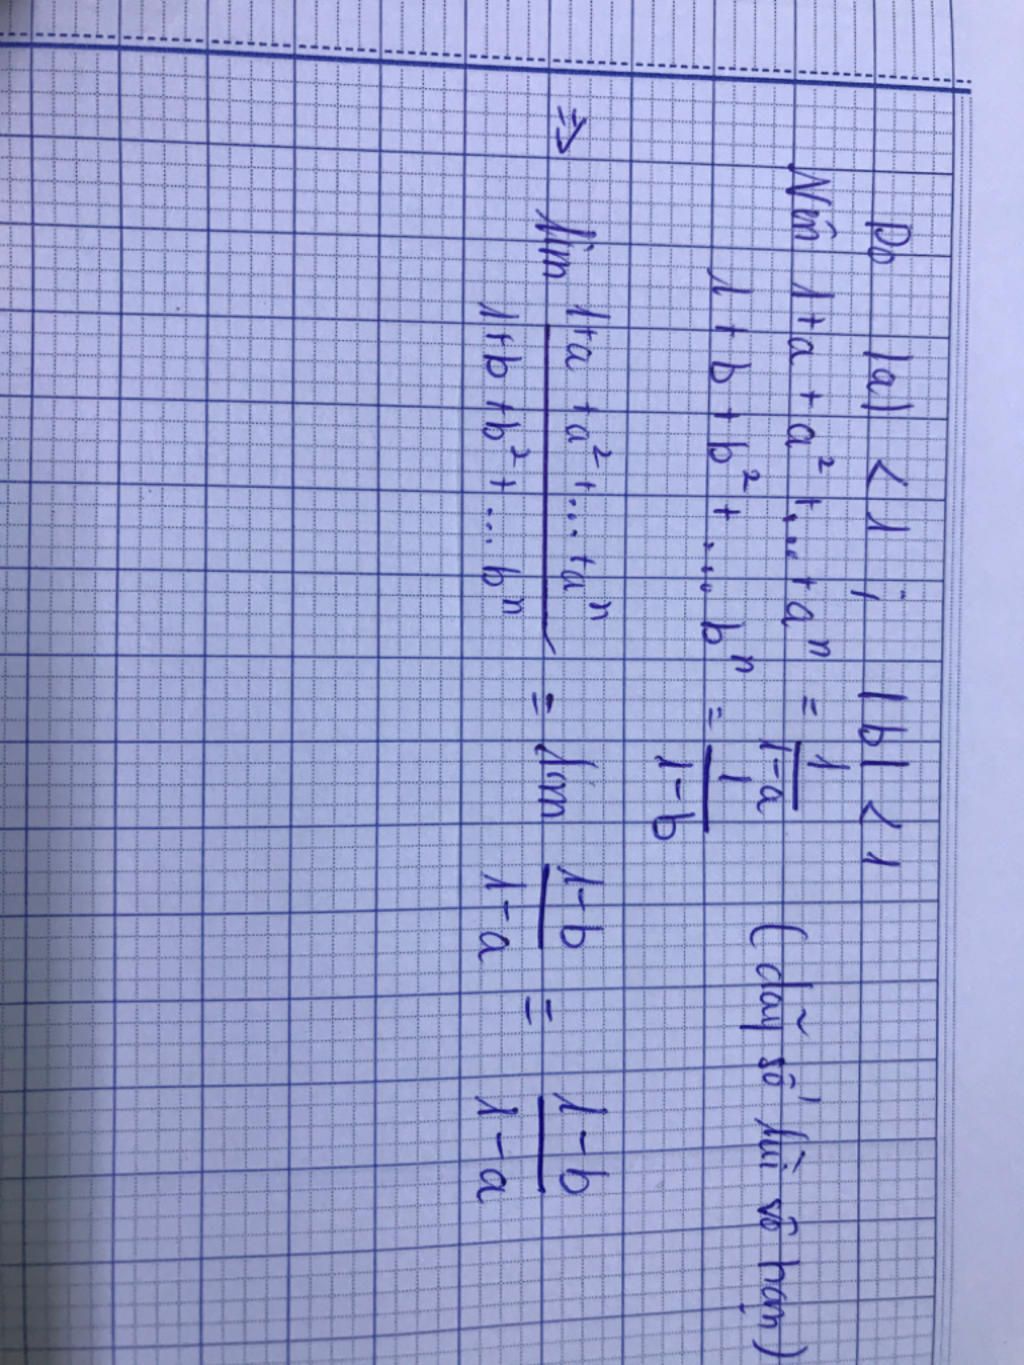 Do |a| < 1 ; |b| < 1
Nên 1+a + a² +...+ aⁿ = 1/(1-a) (dãy số lùi vô hạn)
1 + b + b² + ... bⁿ = 1/(1-b)
⇒ lim (1+a +a² +... +aⁿ)/(1+b +b² + ... bⁿ) = lim (1-b)/(1-a) = (1-b)/(1-a)